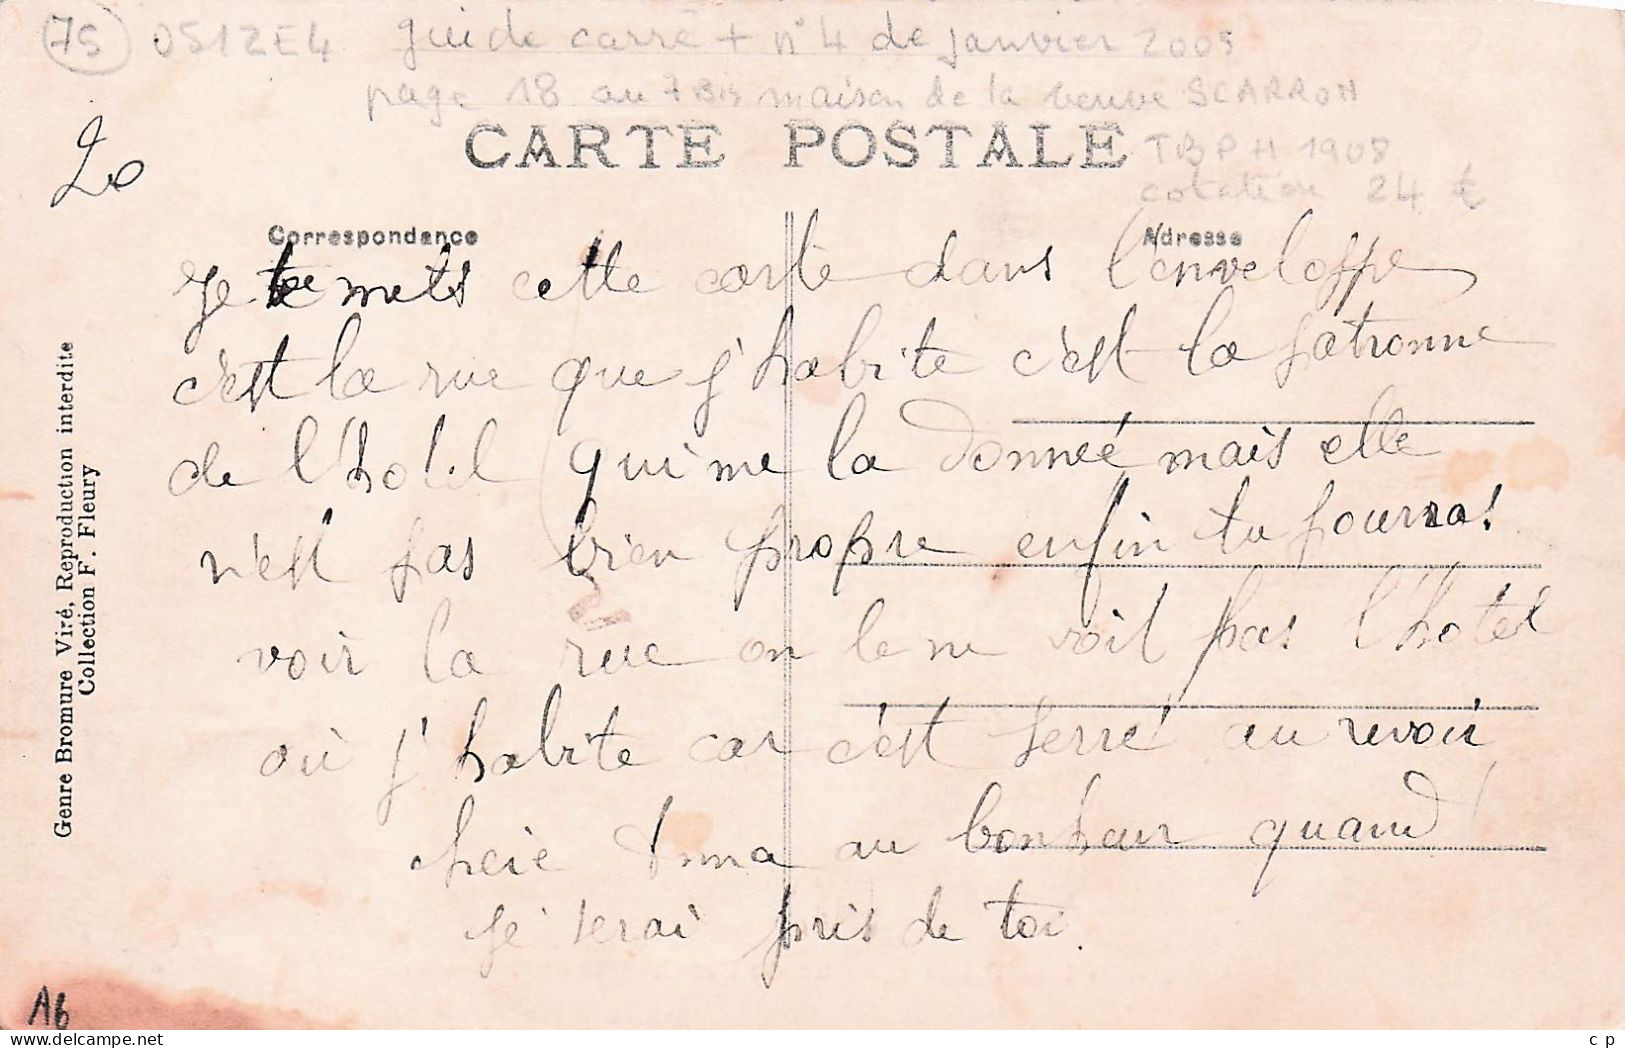 75 0512E4 guide carré + n° 4 de janvier 2005
page 18 au 7 Bis maison de la veuve SCARRON
CARTE POSTALE
TBPH 1908
cotation 24 €
20
Correspondance
Adresse
Je te mets cette carte dans l'enveloppe
c'est la rue que j'habite c'est la patronne
de l'hotel qui me la donneé mais elle
n'est pas bien propre enfin tu pourras
voir la rue on le ne voit pas l'hotel
où j'habite car c'est serré au revoir
cheie Anna au bonheur quand
je serai pris de toi.
Genre Bromure Viré, Reproduction interdite
Collection F. Fleury
A6
c p